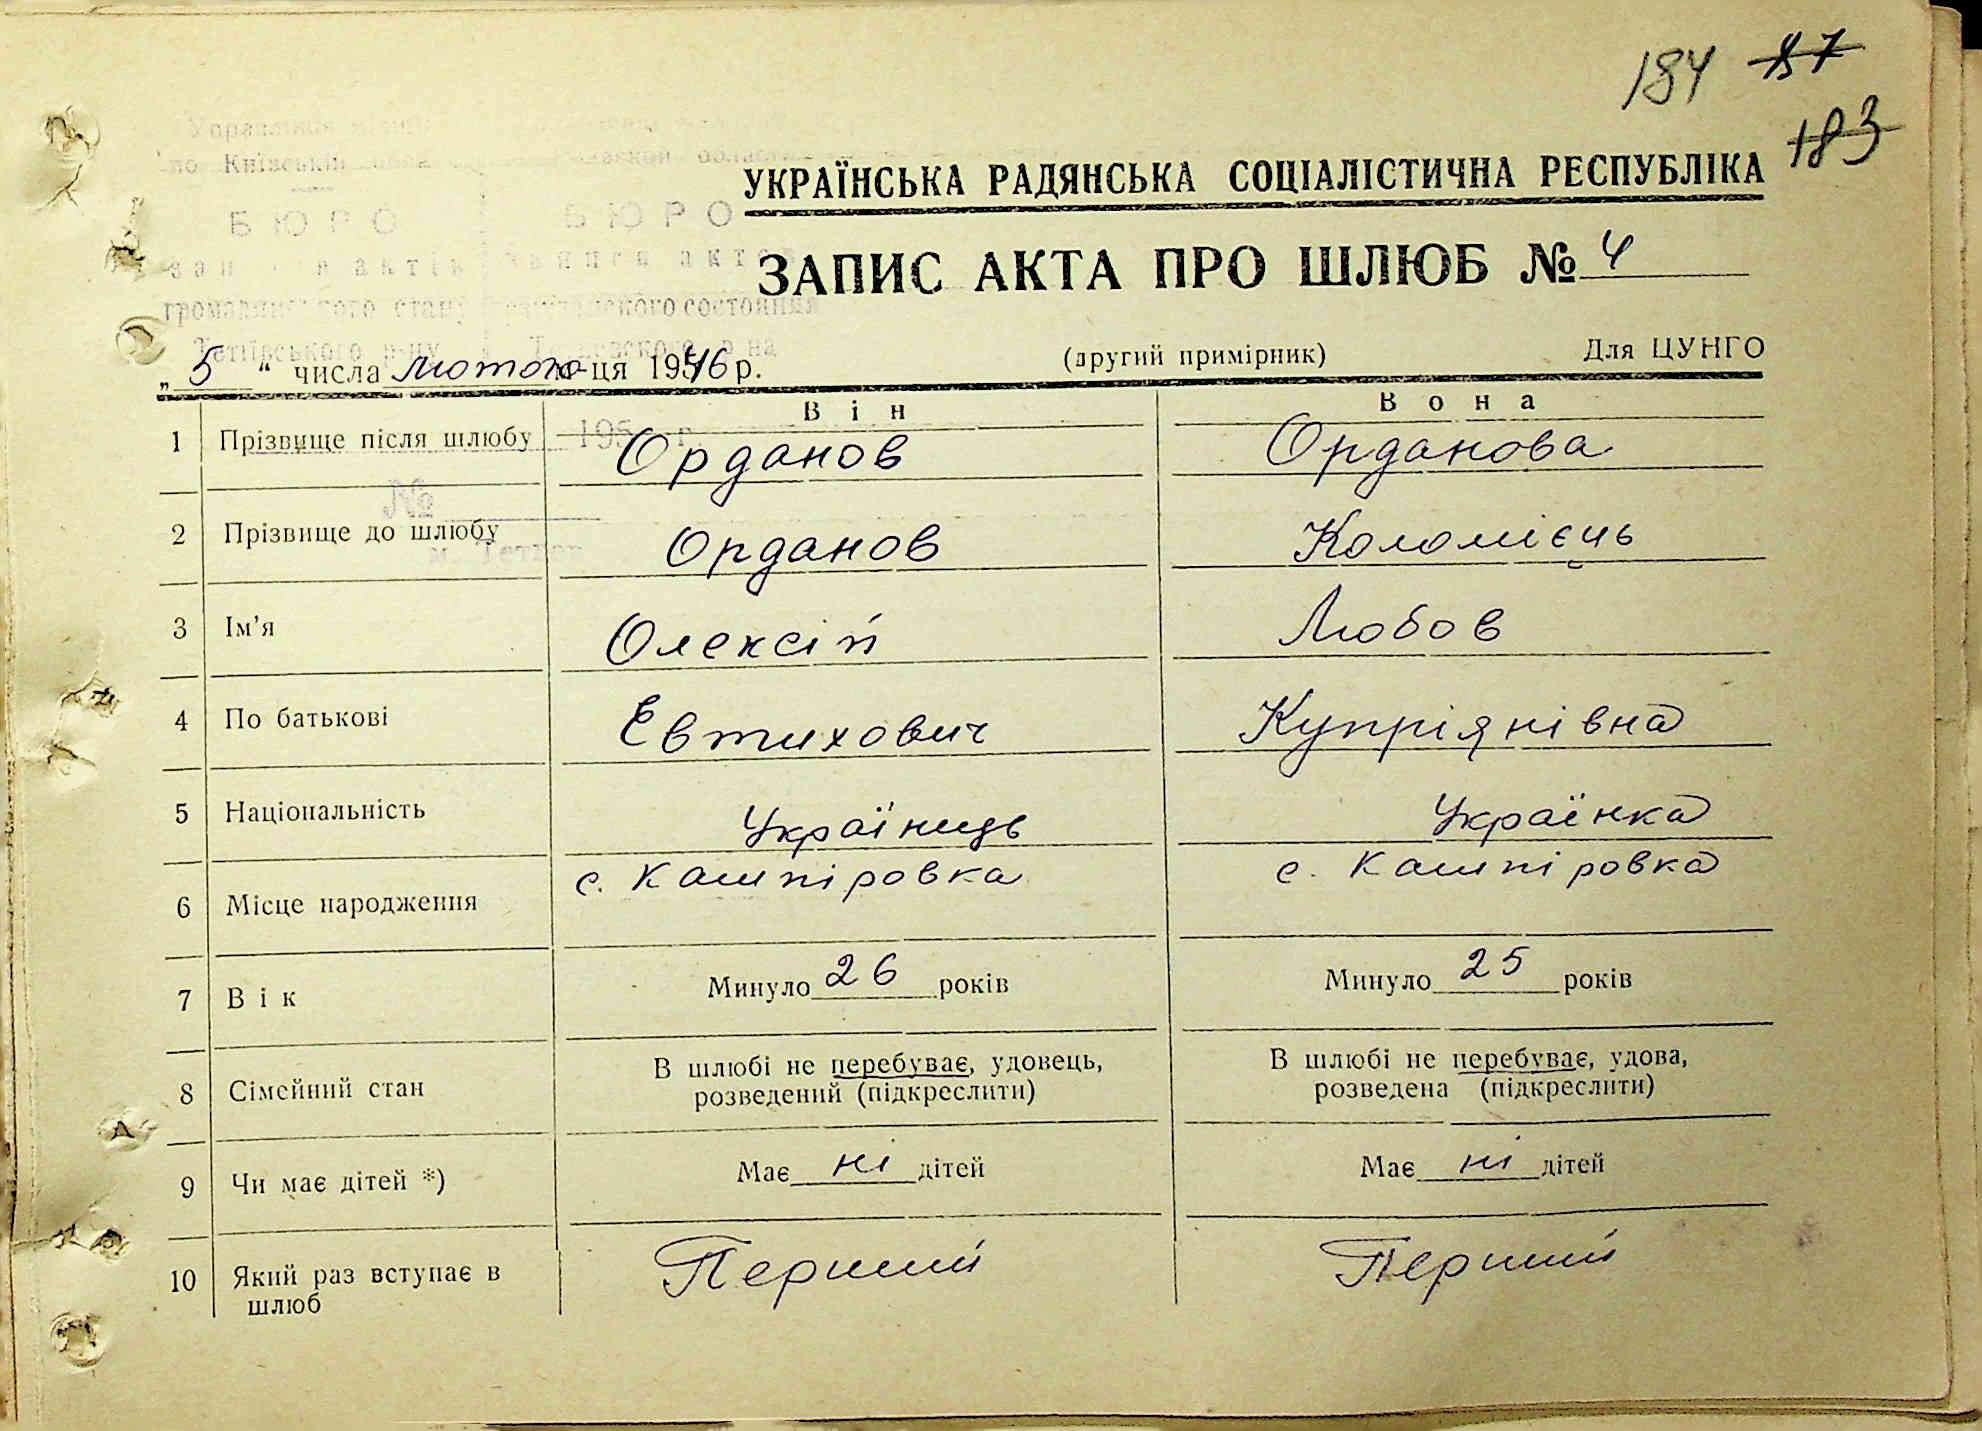 184 87
183
УКРАЇНСЬКА РАДЯНСЬКА СОЦІАЛІСТИЧНА РЕСПУБЛІКА
по Київській
БЮРО БЮРО
ЗАПИС АКТА ПРО ШЛЮБ № 4
громадянського стану гражданского состояния
Тетіївського р-ну Тетиевского р-на
„ 5 “ числа лютого м-ця 1946 р. (другий примірник) Для ЦУНГО
Він Вона
195 г.
1 Прізвище після шлюбу Орданов Орданова
№
2 Прізвище до шлюбу Орданов Коломієць
3 Ім’я Олексій Любов
4 По батькові Евтихович Купріянівна
5 Національність Українець Українка
6 Місце народження с. Кашпіровка с. Кашпіровка
7 Вік Минуло 26 років Минуло 25 років
8 Сімейний стан В шлюбі не перебуває, удовець, розведений (підкреслити) В шлюбі не перебуває, удова, розведена (підкреслити)
9 Чи має дітей *) Має ні дітей Має ні дітей
10 Який раз вступає в шлюб Перший Перший